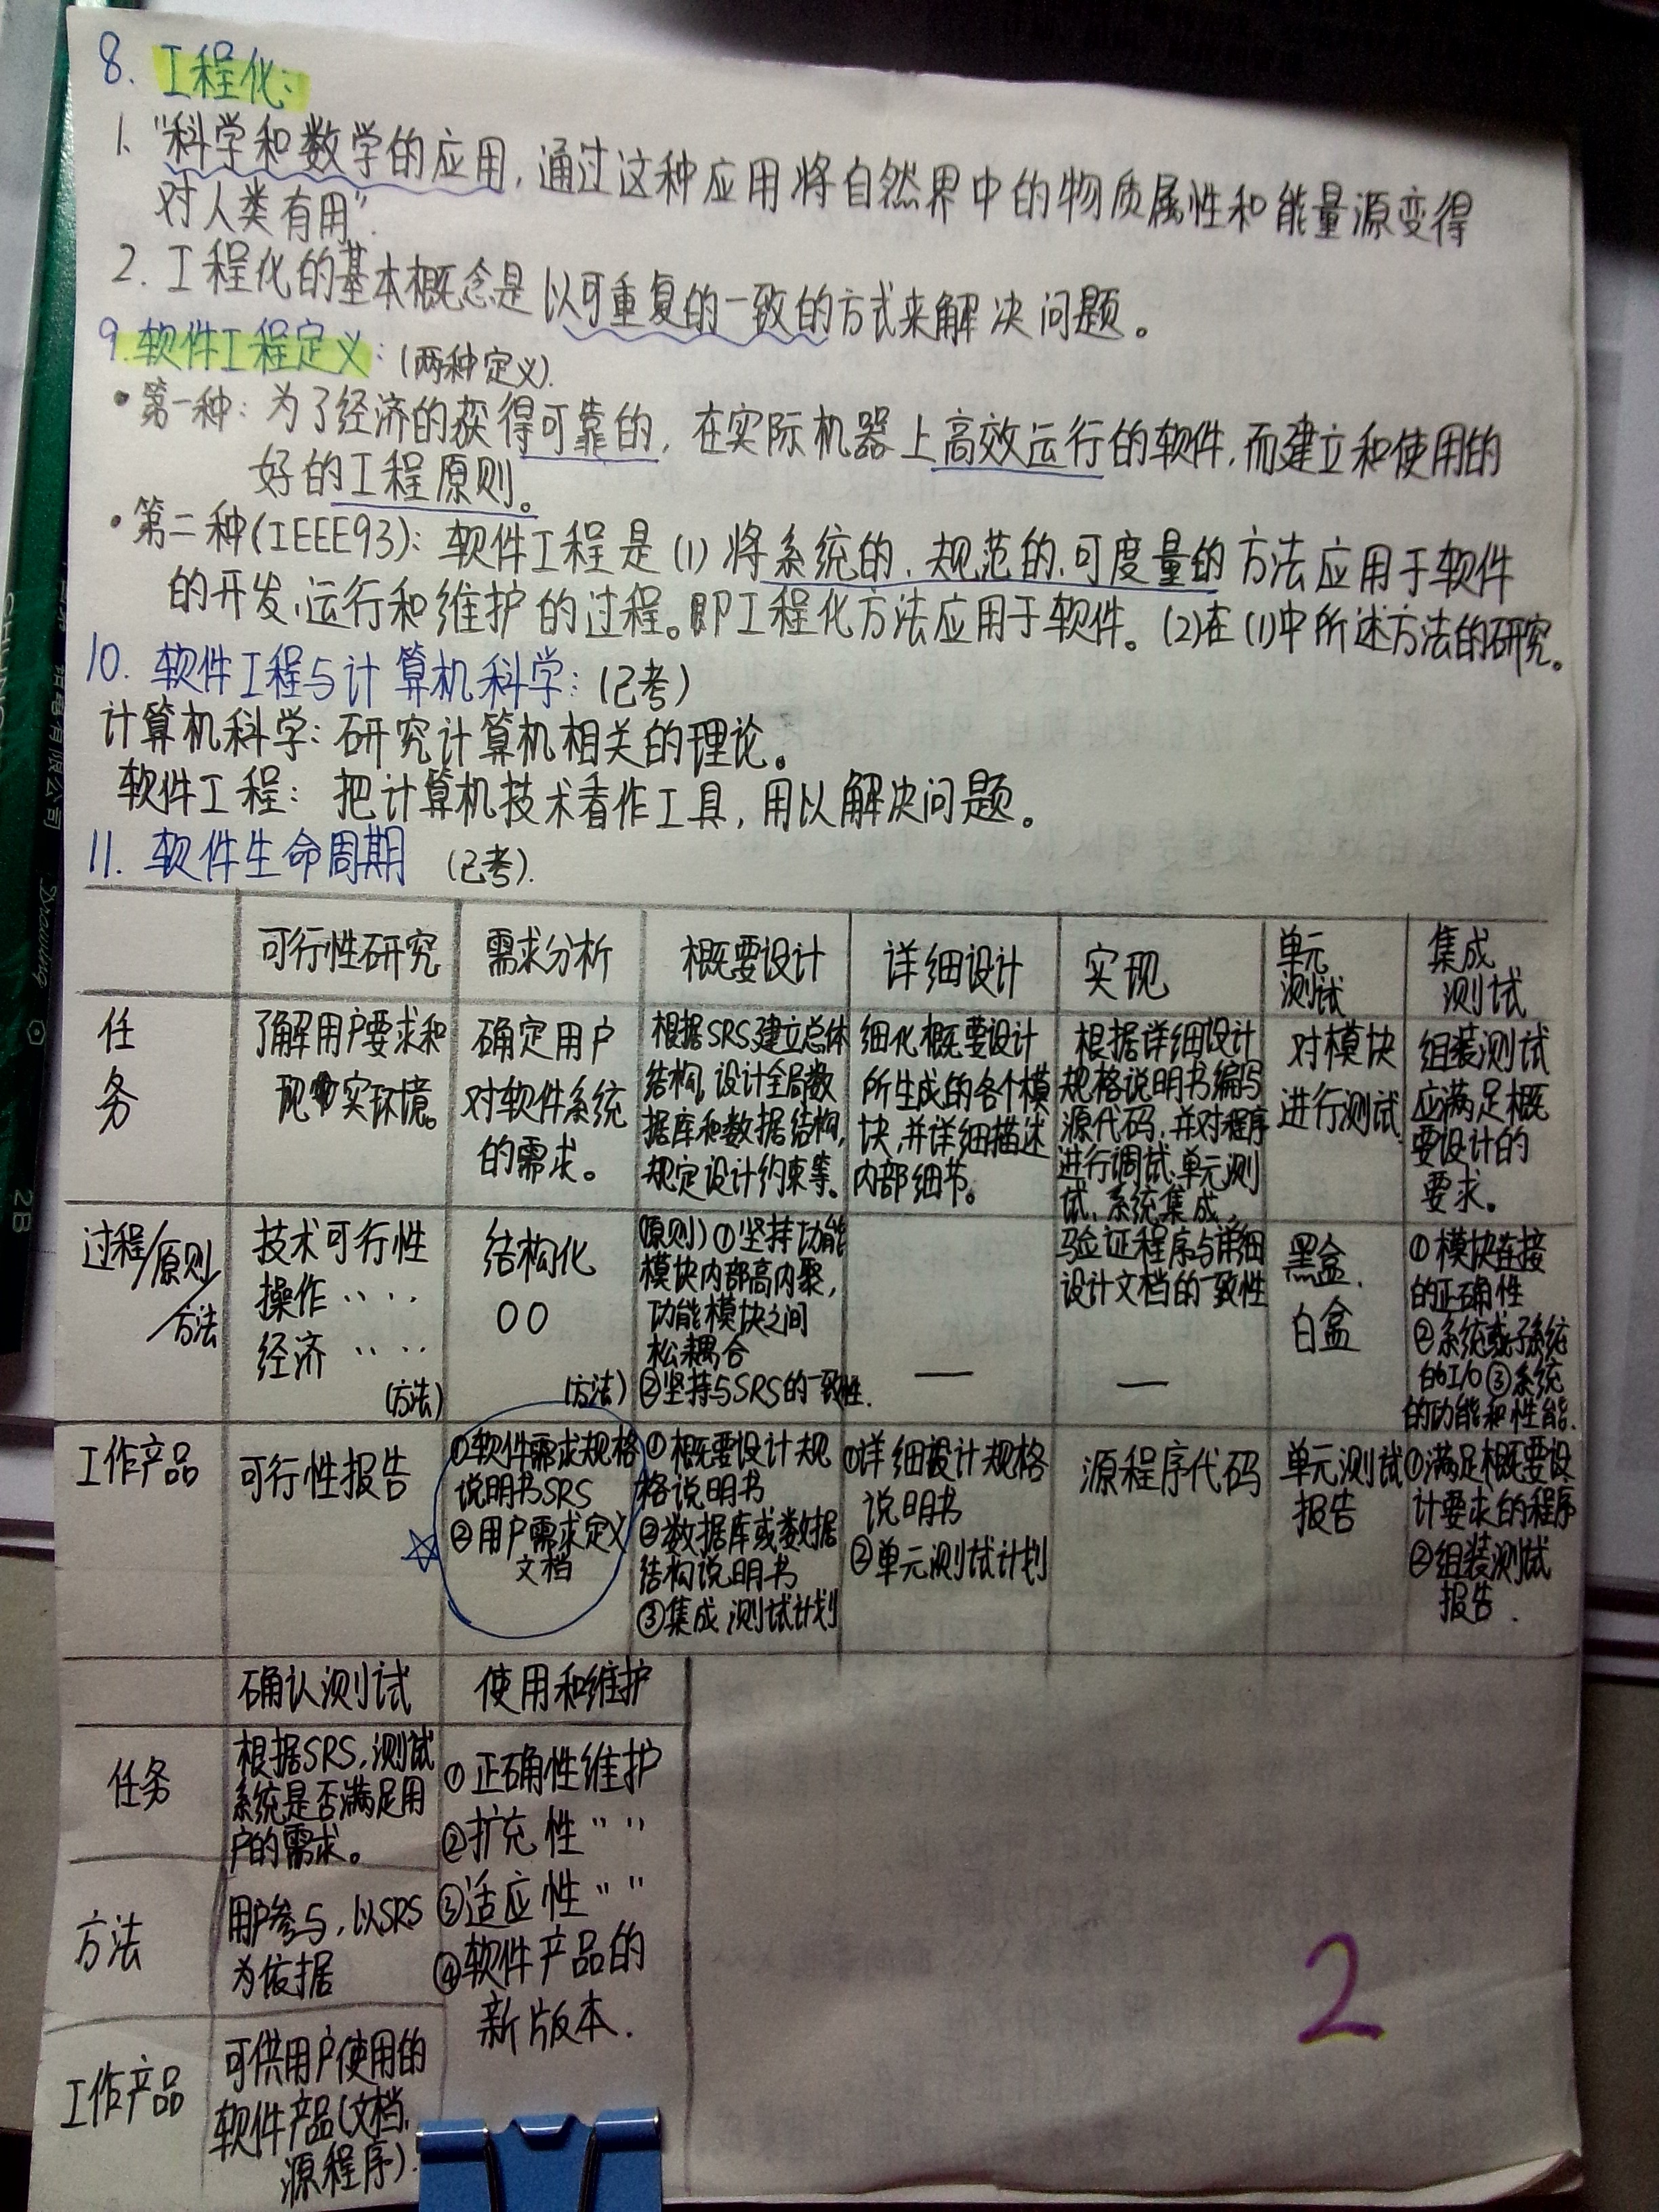 8. 工程化:
1. "科学和数学的应用, 通过这种应用将自然界中的物质属性和能量源变得
对人类有用".
2. 工程化的基本概念是以可重复的一致的方式来解决问题。
9. 软件工程定义: (两种定义).
·第一种: 为了经济的获得可靠的, 在实际机器上高效运行的软件, 而建立和使用的
好的工程原则。
·第二种(IEEE93): 软件工程是 (1) 将系统的、规范的、可度量的方法应用于软件
的开发、运行和维护的过程。即工程化方法应用于软件。(2)在(1)中所述方法的研究。
10. 软件工程与计算机科学: (已考)
计算机科学: 研究计算机相关的理论。
软件工程: 把计算机技术看作工具, 用以解决问题。
11. 软件生命周期 (已考).
可行性研究 需求分析 概要设计 详细设计 实现 单元测试 集成测试
任务
了解用户要求和
现实环境。
确定用户
对软件系统
的需求。
根据SRS建立总体
结构, 设计全局数
据库和数据结构,
规定设计约束等。
细化概要设计
所生成的各个模
块, 并详细描述
内部细节。
根据详细设计
规格说明书编写
源代码, 并对程序
进行调试、单元测
试、系统集成,
验证程序与详细
设计文档的一致性
对模块
进行测试
组装测试
应满足概
要设计的
要求。
过程/原则/
方法
技术可行性
操作 〃 〃
经济 〃 〃
(方法)
结构化
OO
(方法)
(原则) ①坚持功能
模块内部高内聚,
功能模块之间
松耦合
②坚持与SRS的一致性.
—
—
黑盒.
白盒
①模块连接
的正确性
②系统或子系统
的I/O ③系统
的功能和性能.
工作产品
可行性报告
①软件需求规格
说明书SRS
②用户需求定义
文档
①概要设计规
格说明书
②数据库或数据
结构说明书
③集成测试计划
①详细设计规格
说明书
②单元测试计划
源程序代码
单元测试
报告
①满足概要设
计要求的程序
②组装测试
报告.
确认测试 使用和维护
任务
根据SRS, 测试
系统是否满足用
户的需求。
①正确性维护
②扩充性 〃 〃
③适应性 〃 〃
④软件产品的
新版本.
方法
用户参与, 以SRS
为依据
工作产品
可供用户使用的
软件产品(文档、
源程序).
2